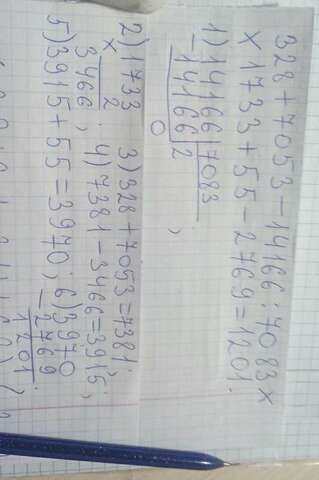 328+7053-14166:7083×
×1733+55-2769=1201.
1) 14166 | 7083
-14166 | 2
0
,
2) 1733 3) 328+7053=7381;
× 2
3466; 4) 7381-3466=3915;
5) 3915+55=3970; 6) 3970
-2769
1201.